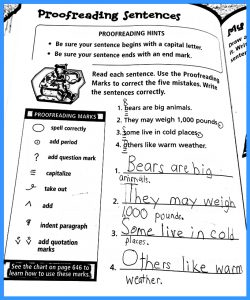 Proofreading Sentences
PROOFREADING HINTS
• Be sure your sentence begins with a capital letter.
• Be sure your sentence ends with an end mark.
Read each sentence. Use the Proofreading
Marks to correct the five mistakes. Write
the sentences correctly.
PROOFREADING MARKS
spell correctly
add period
? add question mark
capitalize
take out
add
indent paragraph
add quotation
marks
See the chart on page 646 to
learn how to use these marks.
1. bears are big animals.
2. They may weigh 1,000 pounds.
3. some live in cold places
4. others like warm weather.
1. Bears are big
animals.
2. They may weigh
1,000 pounds.
3. Some live in cold
places.
4. Others like warm
weather.